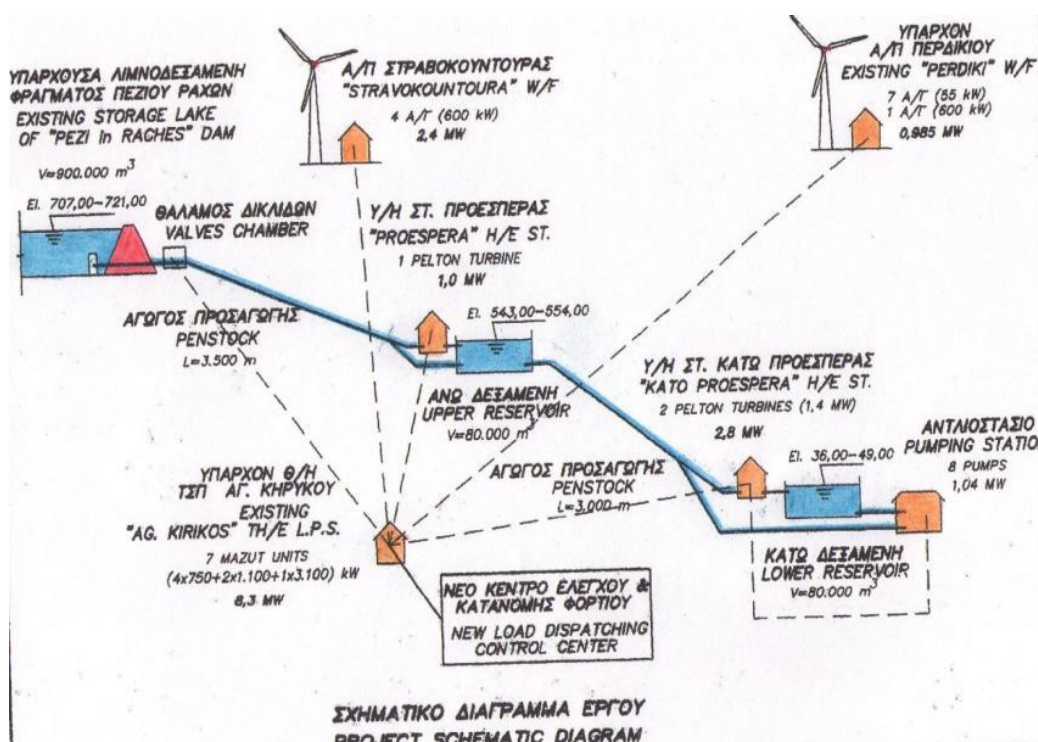 ΥΠΑΡΧΟΥΣΑ ΛΙΜΝΟΔΕΞΑΜΕΝΗ
ΦΡΑΓΜΑΤΟΣ ΠΕΖΙΟΥ ΡΑΧΩΝ
EXISTING STORAGE LAKE
OF "PEZI In RACHES" DAM
V=900.000 m³
El. 707,00-721,00
ΘΑΛΑΜΟΣ ΔΙΚΛΙΔΩΝ
VALVES CHAMBER
Α/Π ΣΤΡΑΒΟΚΟΥΝΤΟΥΡΑΣ
"STRAVOKOUNTOURA" W/F
4 A/T (600 kW)
2,4 MW
ΥΠΑΡΧΟΝ
Α/Π ΠΕΡΔΙΚΙΟΥ
EXISTING "PERDIKI" W/F
7 A/T (55 kW)
1 A/T (600 kW)
0,985 MW
Υ/Η ΣΤ. ΠΡΟΕΣΠΕΡΑΣ
"PROESPERA" H/E ST.
1 PELTON TURBINE
1,0 MW
ΑΓΩΓΟΣ ΠΡΟΣΑΓΩΓΗΣ
PENSTOCK
L=3.500 m
El. 543,00-554,00
ΑΝΩ ΔΕΞΑΜΕΝΗ
UPPER RESERVOIR
V=80.000 m³
Υ/Η ΣΤ. ΚΑΤΩ ΠΡΟΕΣΠΕΡΑΣ
"KATO PROESPERA" H/E ST.
2 PELTON TURBINES (1,4 MW)
2,8 MW
ΑΝΤΛΙΟΣΤΑΣΙΟ
PUMPING STATION
8 PUMPS
1,04 MW
El. 36,00-49,00
ΑΓΩΓΟΣ ΠΡΟΣΑΓΩΓΗΣ
PENSTOCK
L=3.000 m
ΚΑΤΩ ΔΕΞΑΜΕΝΗ
LOWER RESERVOIR
V=80.000 m³
ΥΠΑΡΧΟΝ Θ/Η
ΤΣΠ ΑΓ. ΚΗΡΥΚΟΥ
EXISTING
"AG. KIRIKOS" TH/E L.P.S.
7 MAZUT UNITS
(4x750+2x1.100+1x3.100) kW
8,3 MW
ΝΕΟ ΚΕΝΤΡΟ ΕΛΕΓΧΟΥ &
ΚΑΤΑΝΟΜΗΣ ΦΟΡΤΙΟΥ
NEW LOAD DISPATCHING
CONTROL CENTER
ΣΧΗΜΑΤΙΚΟ ΔΙΑΓΡΑΜΜΑ ΕΡΓΟΥ
PROJECT SCHEMATIC DIAGRAM